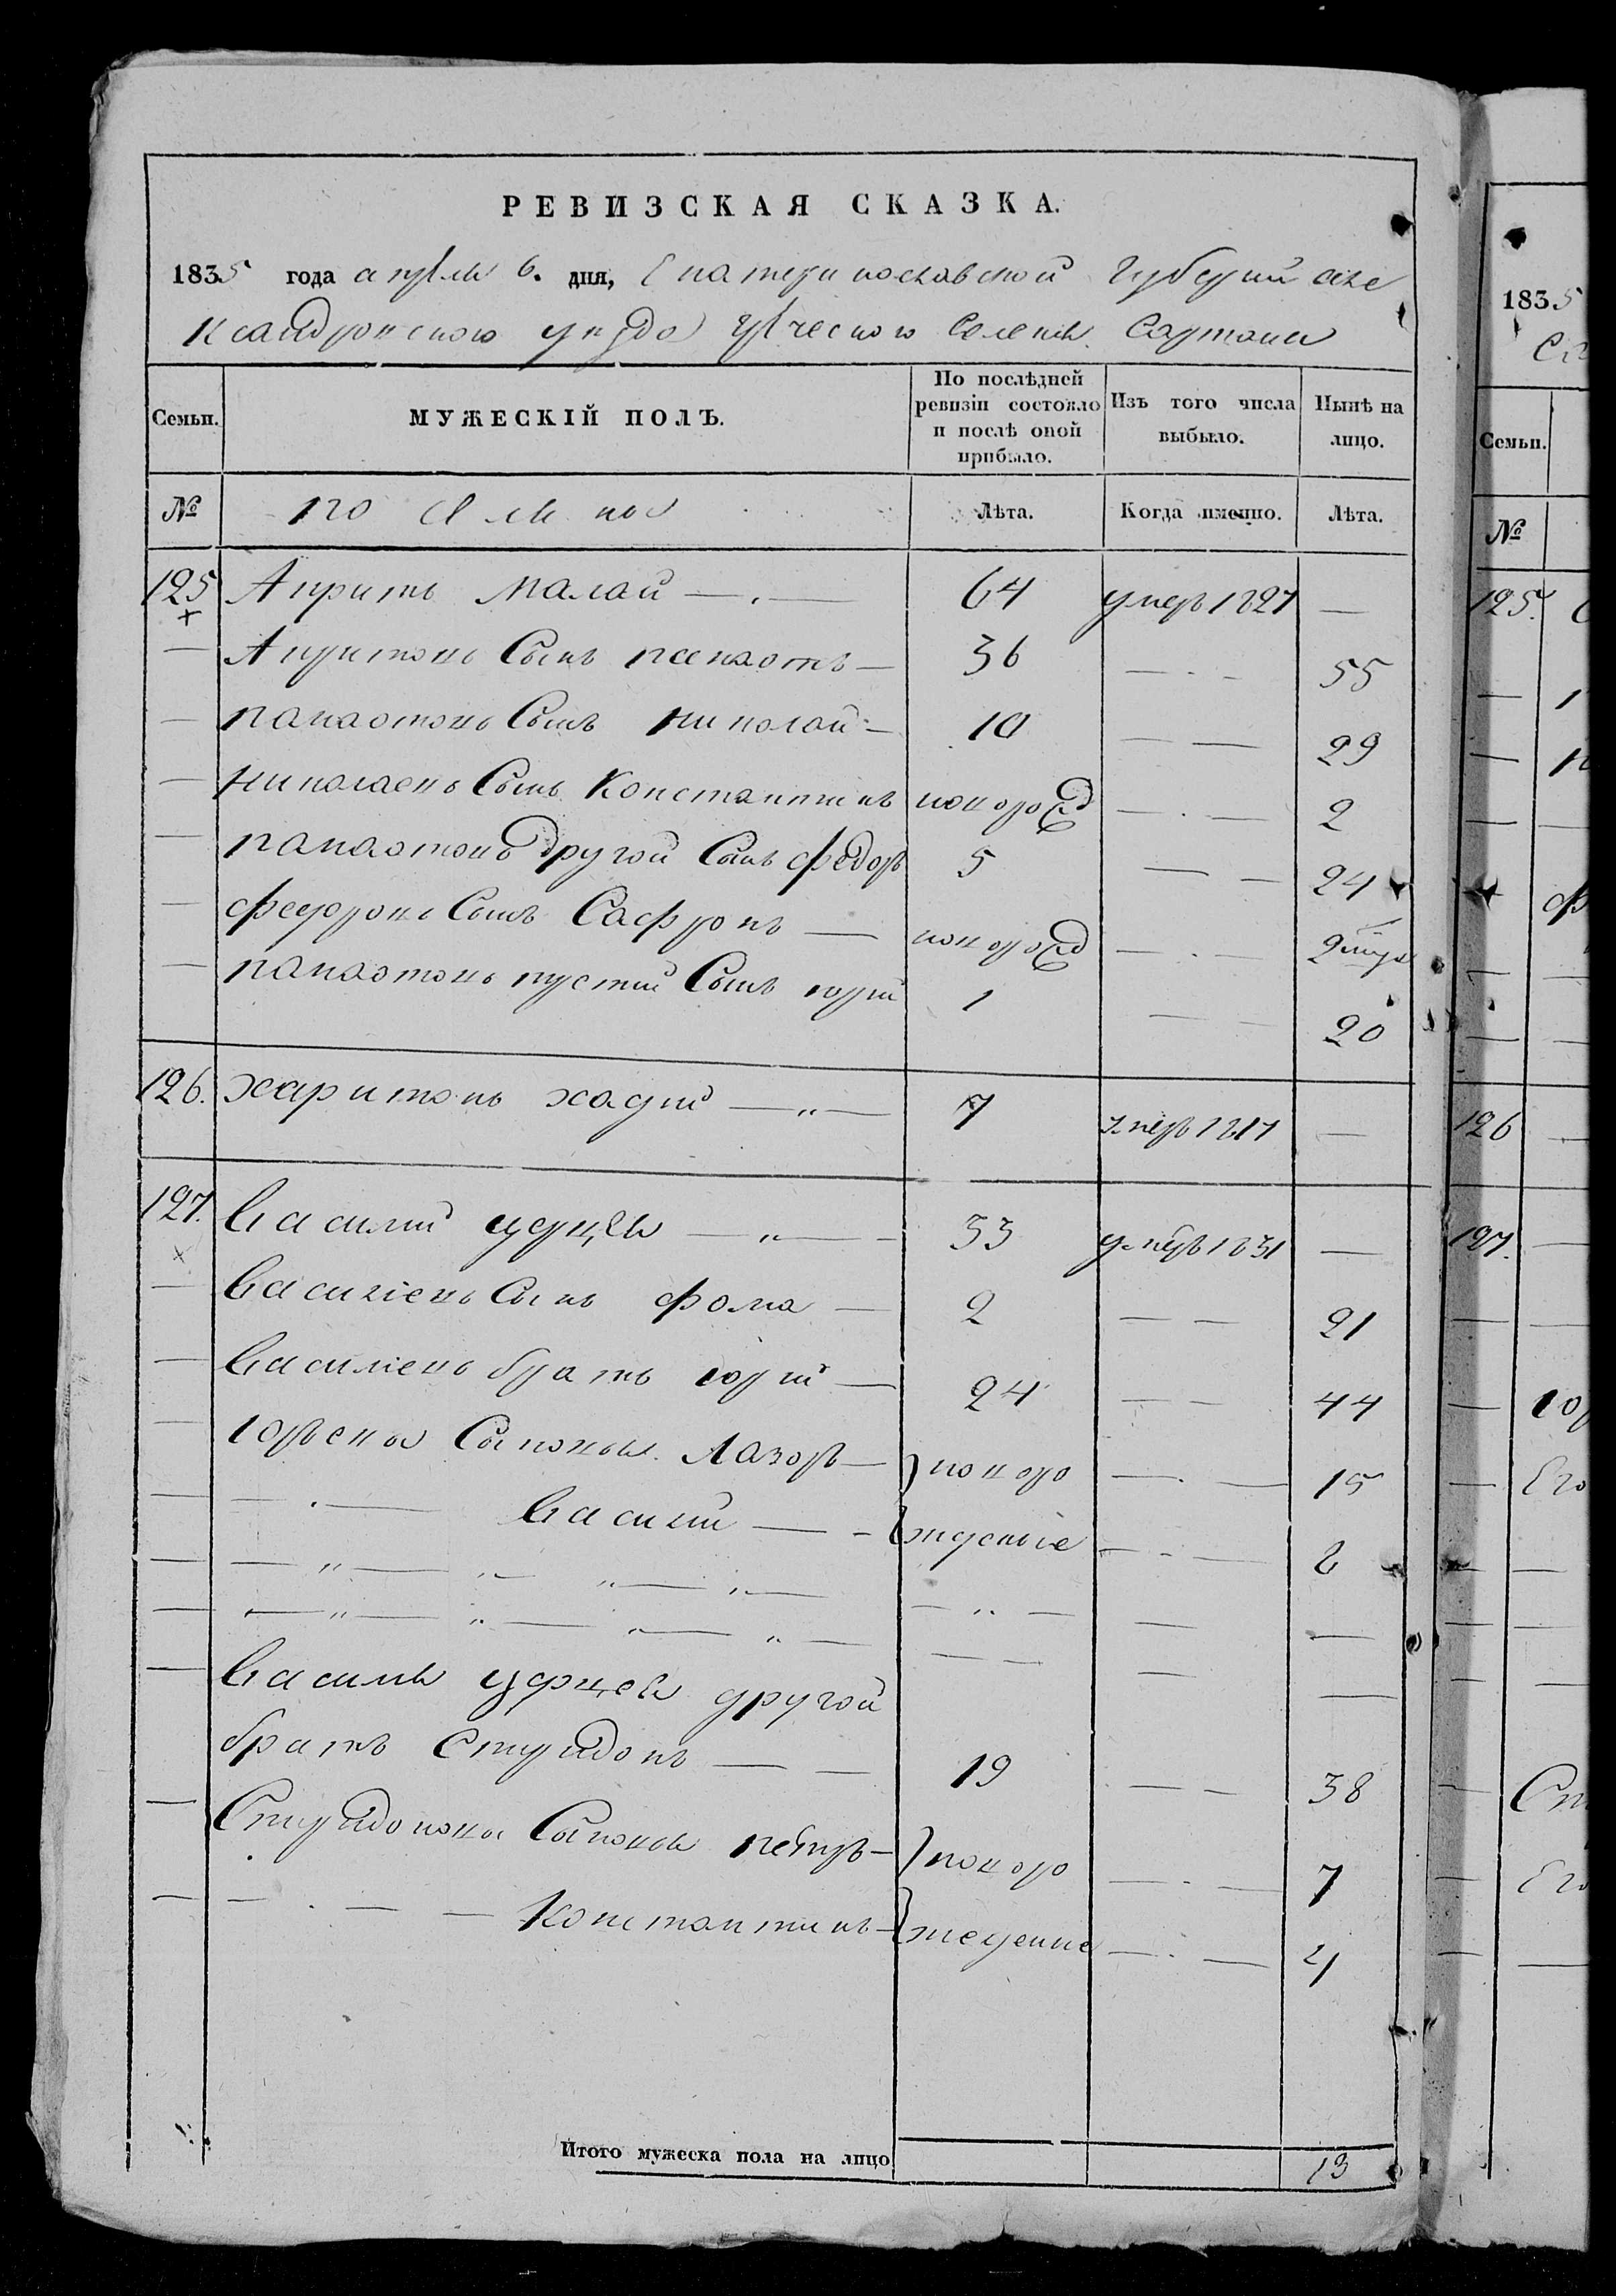 РЕВИЗСКАЯ СКАЗКА.
1835 года апреля 6. дня, Екатеринославской Губернии Але
ксандровского уезда греческого Селения Сартаны
Семьи. МУЖЕСКІЙ ПОЛЪ. По послѣдней ревизіи состояло и послѣ оной прибыло. Изъ того числа выбыло. Нынѣ на лицо.
№ Лѣта. Когда именно. Лѣта.
125 Апритъ Малай — 64 умеръ 1827 —
— Апритовъ Сынъ — 36 — 55
— панаотовъ Сынъ Николай — 10 — 29
— Николаевъ Сынъ Константинъ новорожд — 2
— панаотовъ другой Сынъ федоръ 5 — 24
— федоровъ Сынъ Сафронъ — новорожд — 2
— панаотовъ третий Сынъ юрий 1 — 20
126. харитонъ хаджи — 7 умеръ 1817 —
127. Василий — 33 умеръ 1831 —
— Василіевъ Сынъ фома — 2 — 21
— Василіевъ братъ юрий — 24 — 44
— юрьевы Сыновья Лазорь — новоро — 15
— Василий — жденые — 2
— Василия другой
братъ Спиридонъ — 19 — 38
— Спиридоновы Сыновья петръ — новоро — 7
— Константинъ — жденные — 4
Итого мужеска пола на лицо 13
1835
Семьи.
№
125.
126
127.